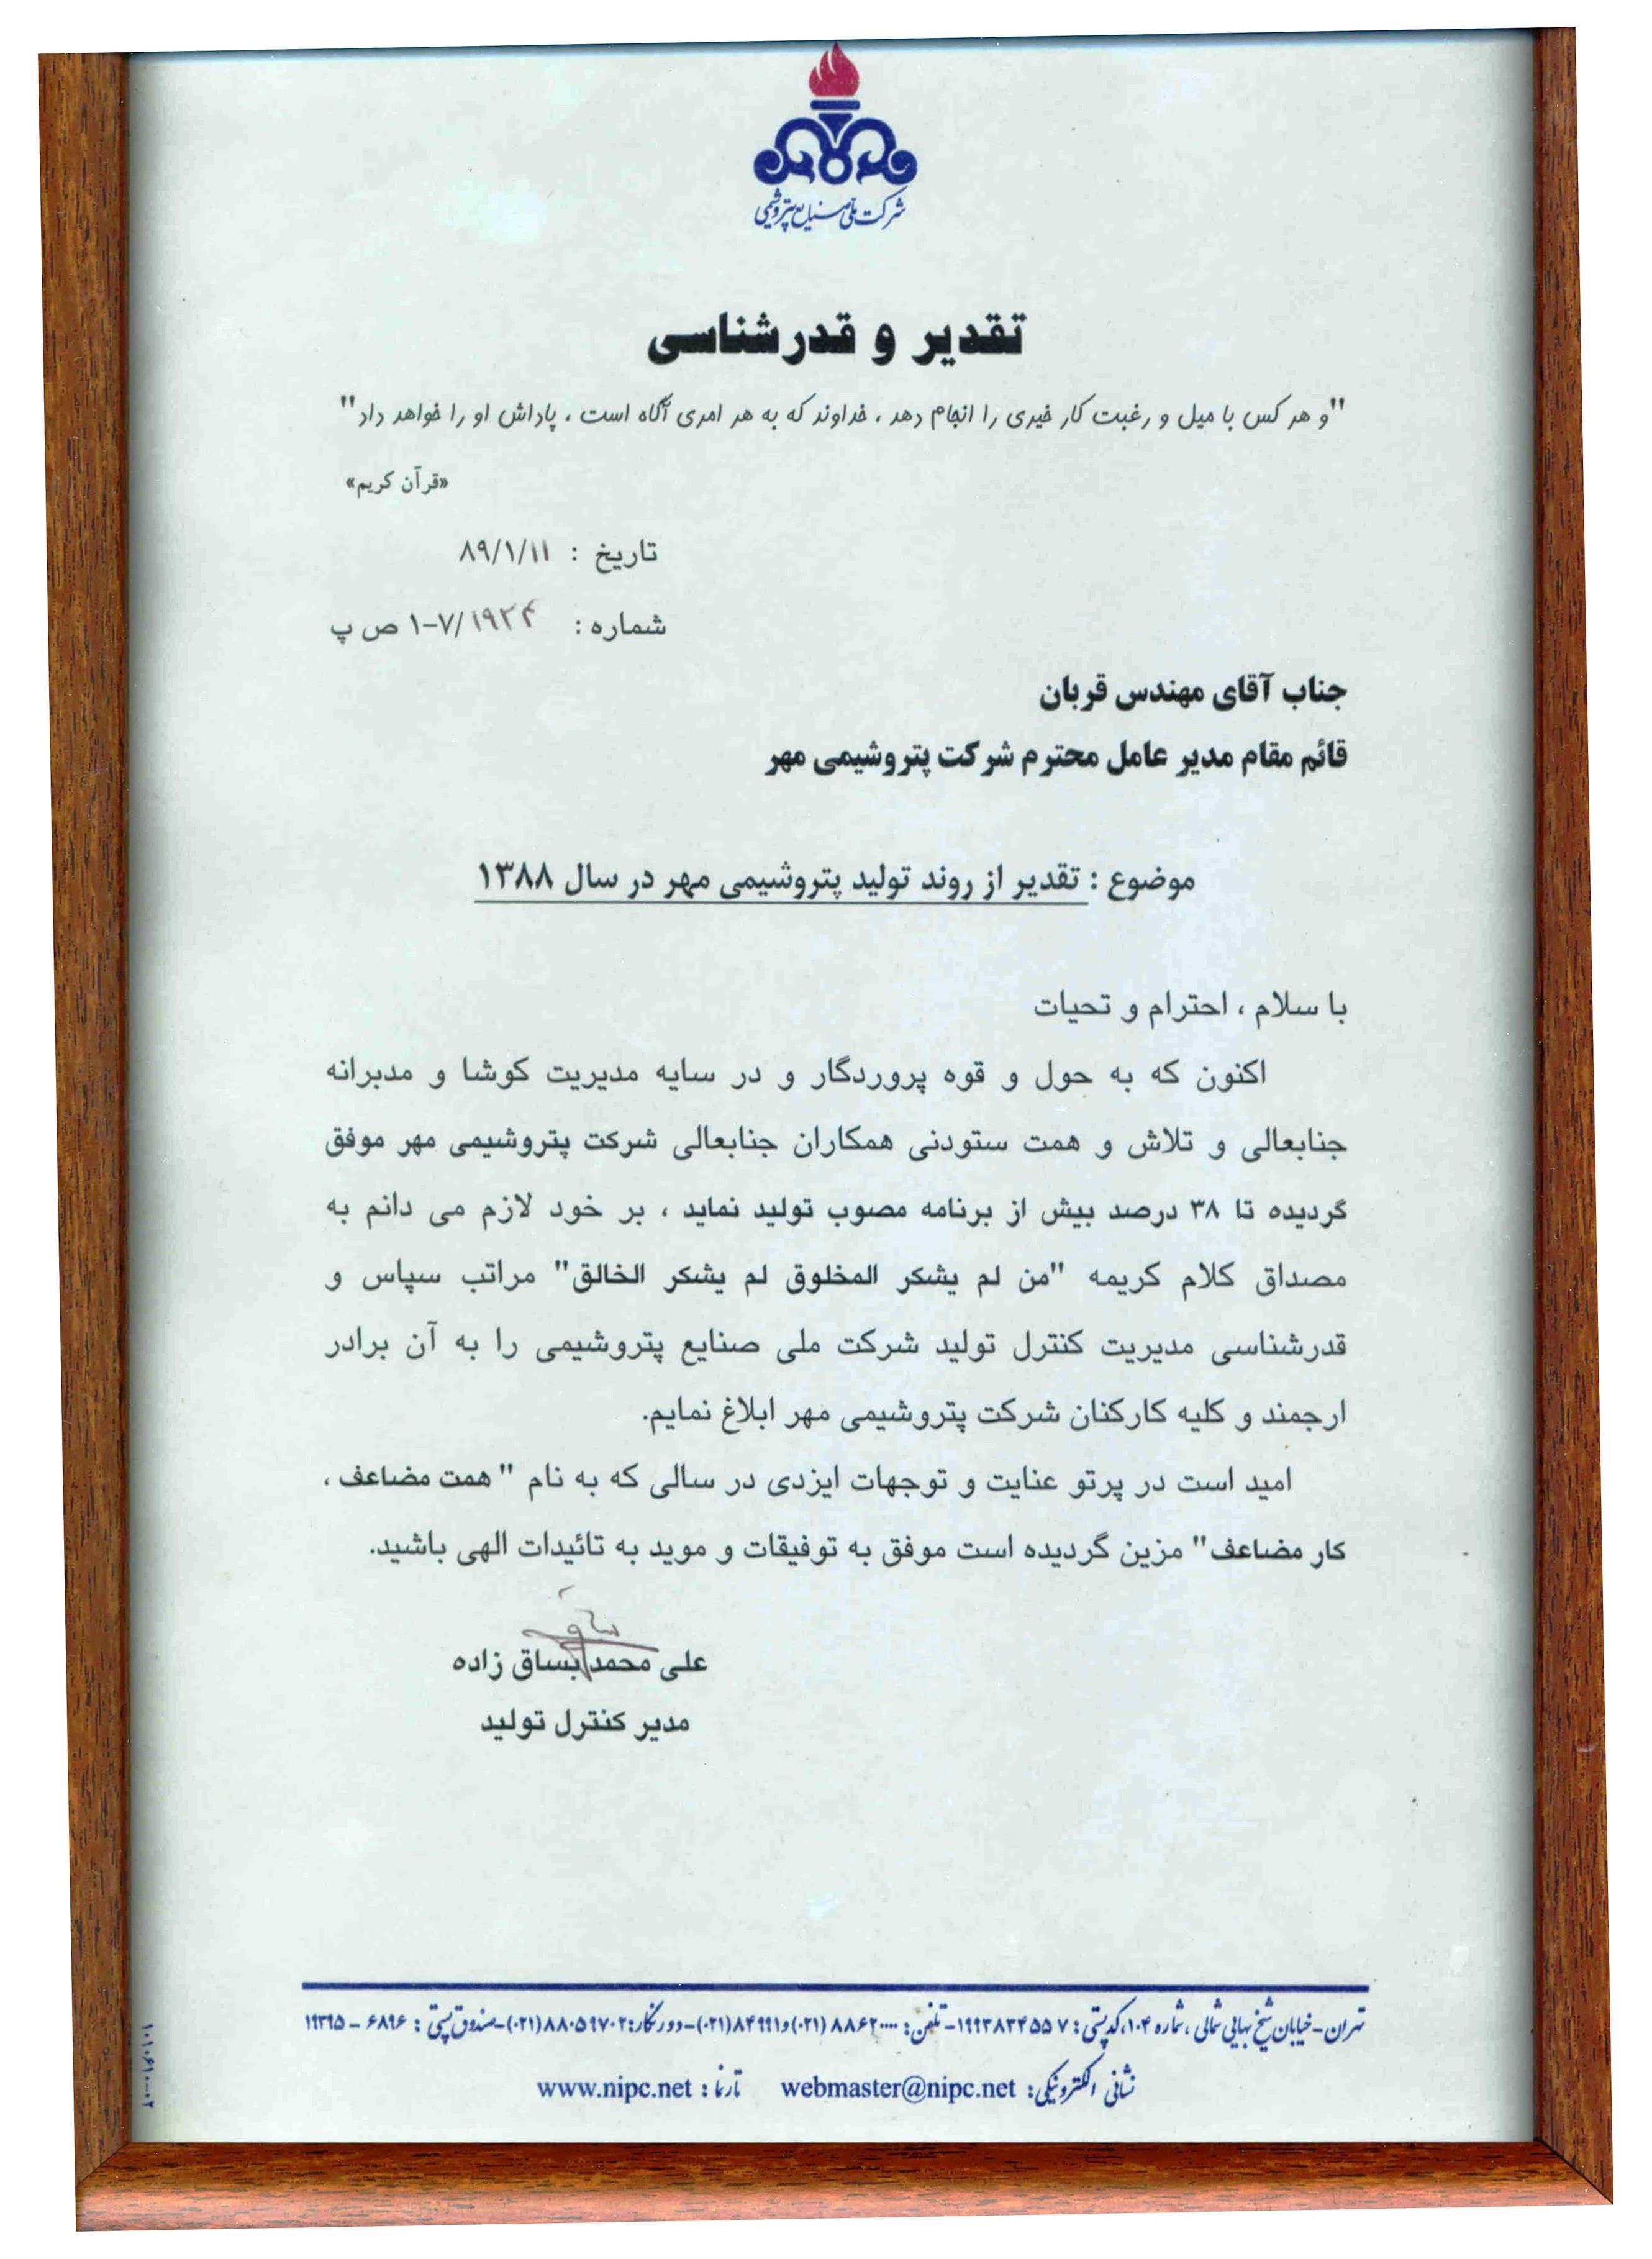 شرکت ملی صنایع پتروشیمی
تقدیر و قدرشناسی
"و هر کس با میل و رغبت کار خیری را انجام دهد ، خداوند که به هر امری آگاه است ، پاداش او را خواهد داد"
«قرآن کریم»
تاریخ : ۸۹/۱/۱۱
شماره : ۱-۷/۱۹۲۴ ص پ
جناب آقای مهندس قربان
قائم مقام مدیر عامل محترم شرکت پتروشیمی مهر
موضوع : تقدیر از روند تولید پتروشیمی مهر در سال ۱۳۸۸
با سلام ، احترام و تحیات
اکنون که به حول و قوه پروردگار و در سایه مدیریت کوشا و مدبرانه
جنابعالی و تلاش و همت ستودنی همکاران جنابعالی شرکت پتروشیمی مهر موفق
گردیده تا ۳۸ درصد بیش از برنامه مصوب تولید نماید ، بر خود لازم می دانم به
مصداق کلام کریمه "من لم یشکر المخلوق لم یشکر الخالق" مراتب سپاس و
قدرشناسی مدیریت کنترل تولید شرکت ملی صنایع پتروشیمی را به آن برادر
ارجمند و کلیه کارکنان شرکت پتروشیمی مهر ابلاغ نمایم.
امید است در پرتو عنایت و توجهات ایزدی در سالی که به نام " همت مضاعف ،
کار مضاعف" مزین گردیده است موفق به توفیقات و موید به تائیدات الهی باشید.
علی محمد بساق زاده
مدیر کنترل تولید
تهران-خیابان شیخ بهایی شمالی ، شماره ۱۰۴، کدپستی : ۱۹۹۳۸۳۴۵۵۷- تلفن: ۸۸۶۲۰۰۰۰ (۰۲۱)و۸۴۹۹۱(۰۲۱)-دورنگار: ۸۸۰۵۹۷۰۲(۰۲۱)-صندوق پستی : ۶۸۹۶ - ۱۹۳۹۵
نشانی الکترونیکی: webmaster@nipc.net تارنما : www.nipc.net